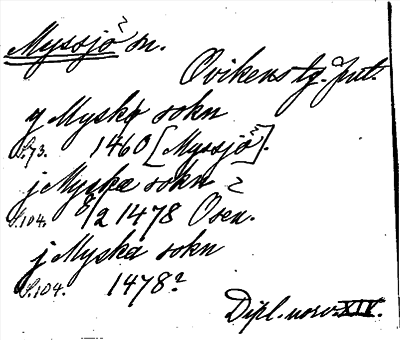 Myssjö sn.
Ovikens tg. Jmt.
y Myskø sokn
S.73. 1460 [Myssjö].
j Myska sokn
S.104. 8/2 1478 Osen.
j Myska sokn
S.104. 1478?
Dipl. norv. XIV.